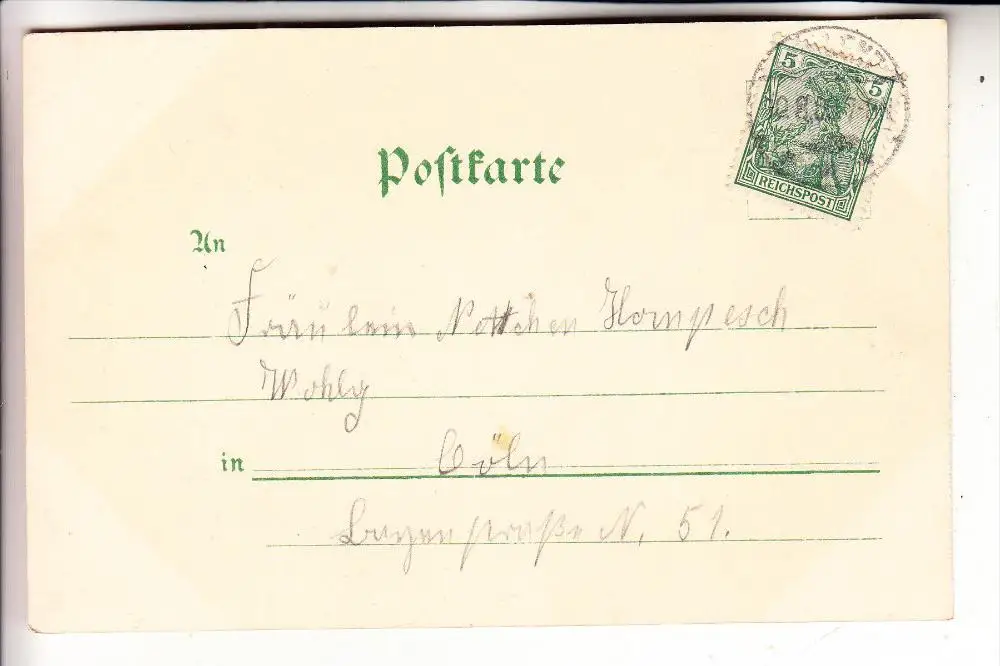 5 5
REICHSPOST
Postkarte
An
Fräulein Nettchen Hompesch
Wohlg
in Cöln
N. 51.